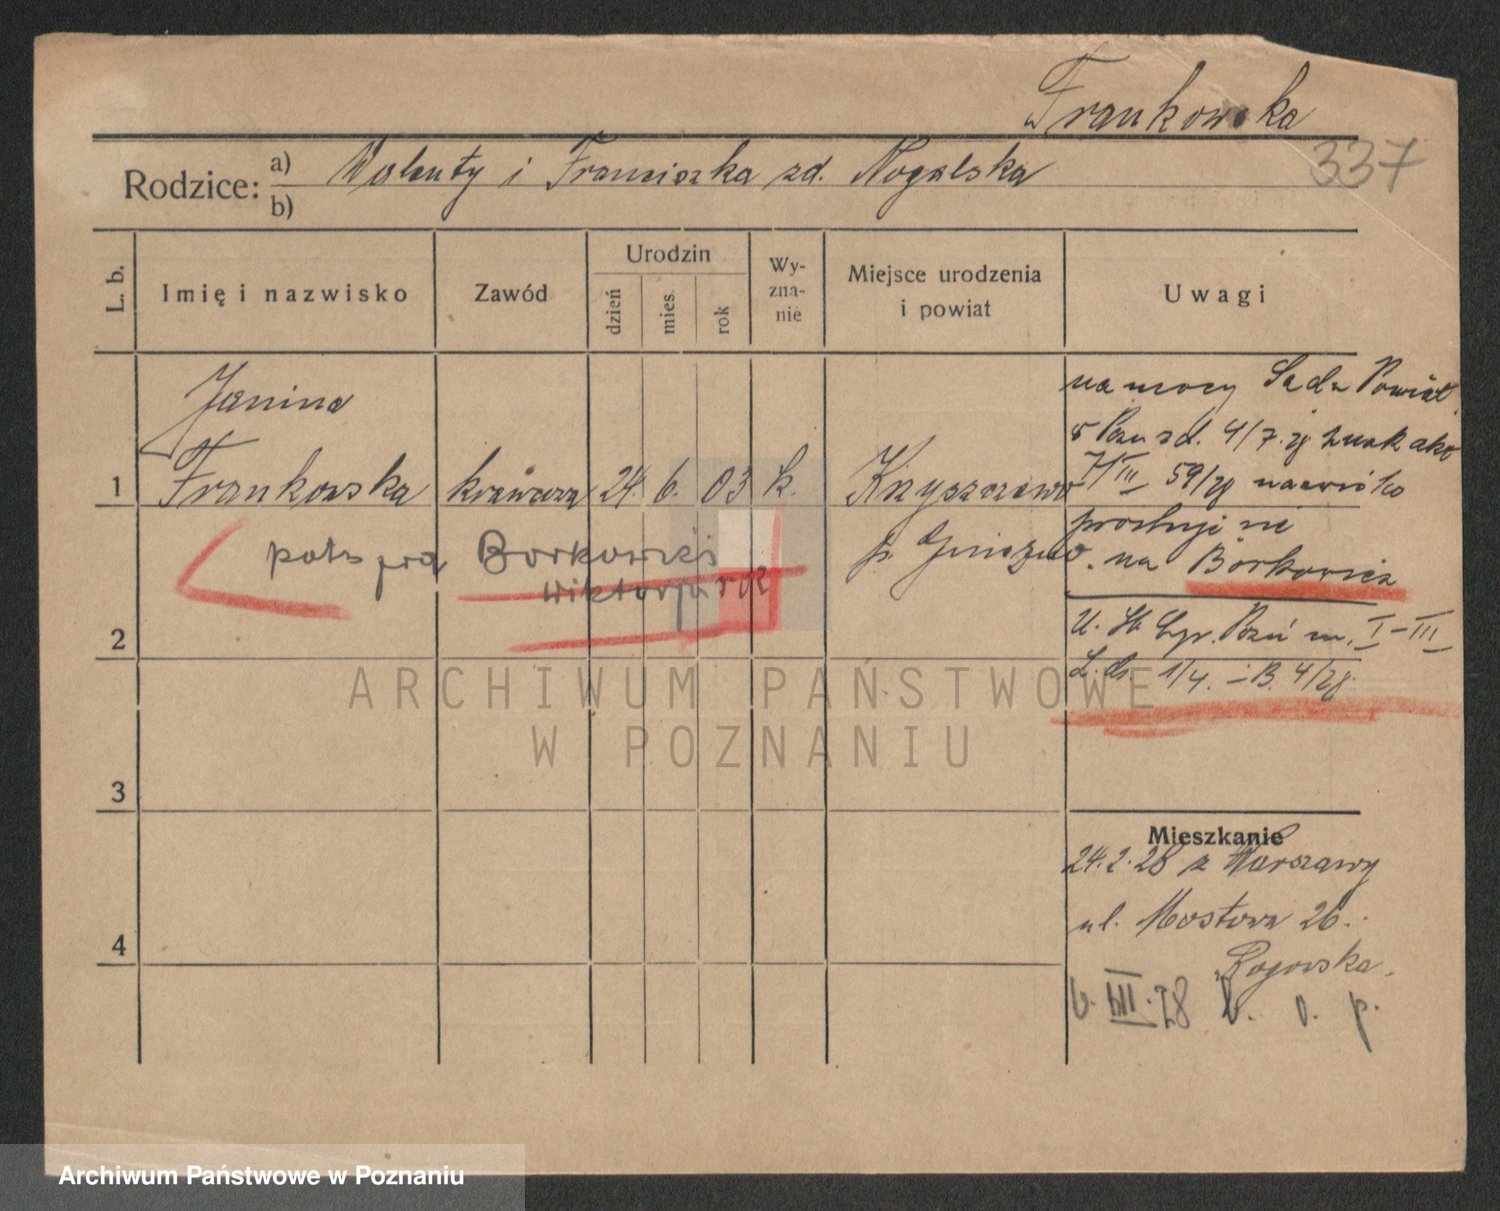 Frankowska
337
Rodzice: a) Walenty i Franciszka zd. Nogalska
b)
L. b.
Imię i nazwisko
Zawód
Urodzin
dzień
mies.
rok
Wy-
zna-
nie
Miejsce urodzenia
i powiat
Uwagi
Janina
1 Frankowska krawcowa 24. 6. 03 k. Krzyszczewo
p. Gniezno
na mocy Sądu Powiat.
w Pozn zd. 4/7. 28 znak ako
7/III 59/28 nazwisko
prostuje się
na Borkowicz
patrz pra Borkowski
Wiktorja
2
U. St. Cyw. Pozń m. I-III
L. dz. 1/4. - B. 4/28
ARCHIWUM PAŃSTWOWE
W POZNANIU
3
Mieszkanie
24.2.28 z Warszawy
ul. Mostowa 26.
Rogowska.
4
6. VIII. 28 b. o. p.
Archiwum Państwowe w Poznaniu